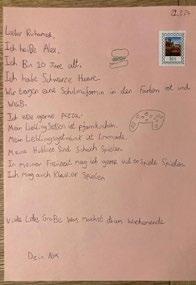 Lieber Muhamed,
Ich heiße Alex.
Ich Bin 10 Jare alt.
Ich habe Schwarze Haare.
Wir tragen eine Schuluniform in den Farben rot und
Weiß.
Ich esse gerne pizza.
Mein Lieblings ist pfannkuchen.
Mein Lieblingsgetränk ist Limonade.
Meine Hobbies sind Schach Spielen
In meiner Freizeit mag ich gerne Spiele Spielen
Ich mag auch Klavier Spielen
Viele Liebe Grüße
Dein Alex